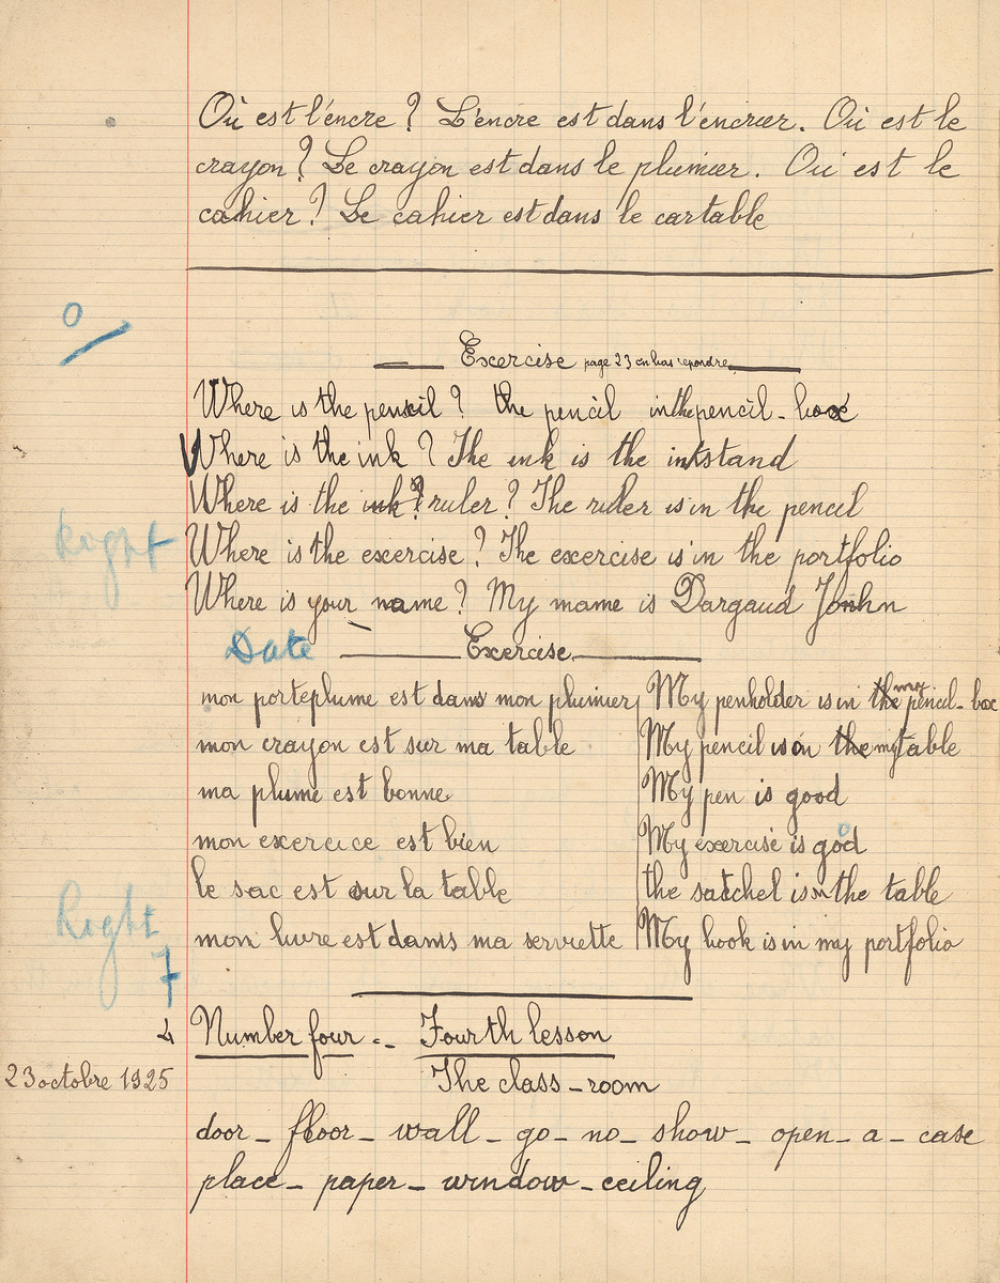 Où est l'éncre ? L'éncre est dans l'éncrier. Où est le
crayon ? Le crayon est dans le plumier. Où est le
cahier ? Le cahier est dans le cartable
0
Exercise page 23 en bas repondre
Where is the pencil ? the pencil in the pencil - box
Where is the ink ? The ink is the inkstand
Where is the ink ? ruler ? The ruler is in the pencil
Right
Where is the exercise ? The exercise is in the portfolio
Where is your name ? My mame is Dargaud Jonhn
Date
Exercise
mon porteplume est dans mon plumier My penholder is in the my pencil - box
mon crayon est sur ma table My pencil is on the my table
ma plume est bonne My pen is good
mon exercice est bien My exercise is god
o
le sac est sur la table the satchel is on the table
Right
mon livre est dams ma serviette My book is in my portfolio
7
4 Number four .- Fourth lesson
23 octobre 1925 The class - room
door - floor - wall - go - no - show - open - a - case
place - paper - window - ceiling